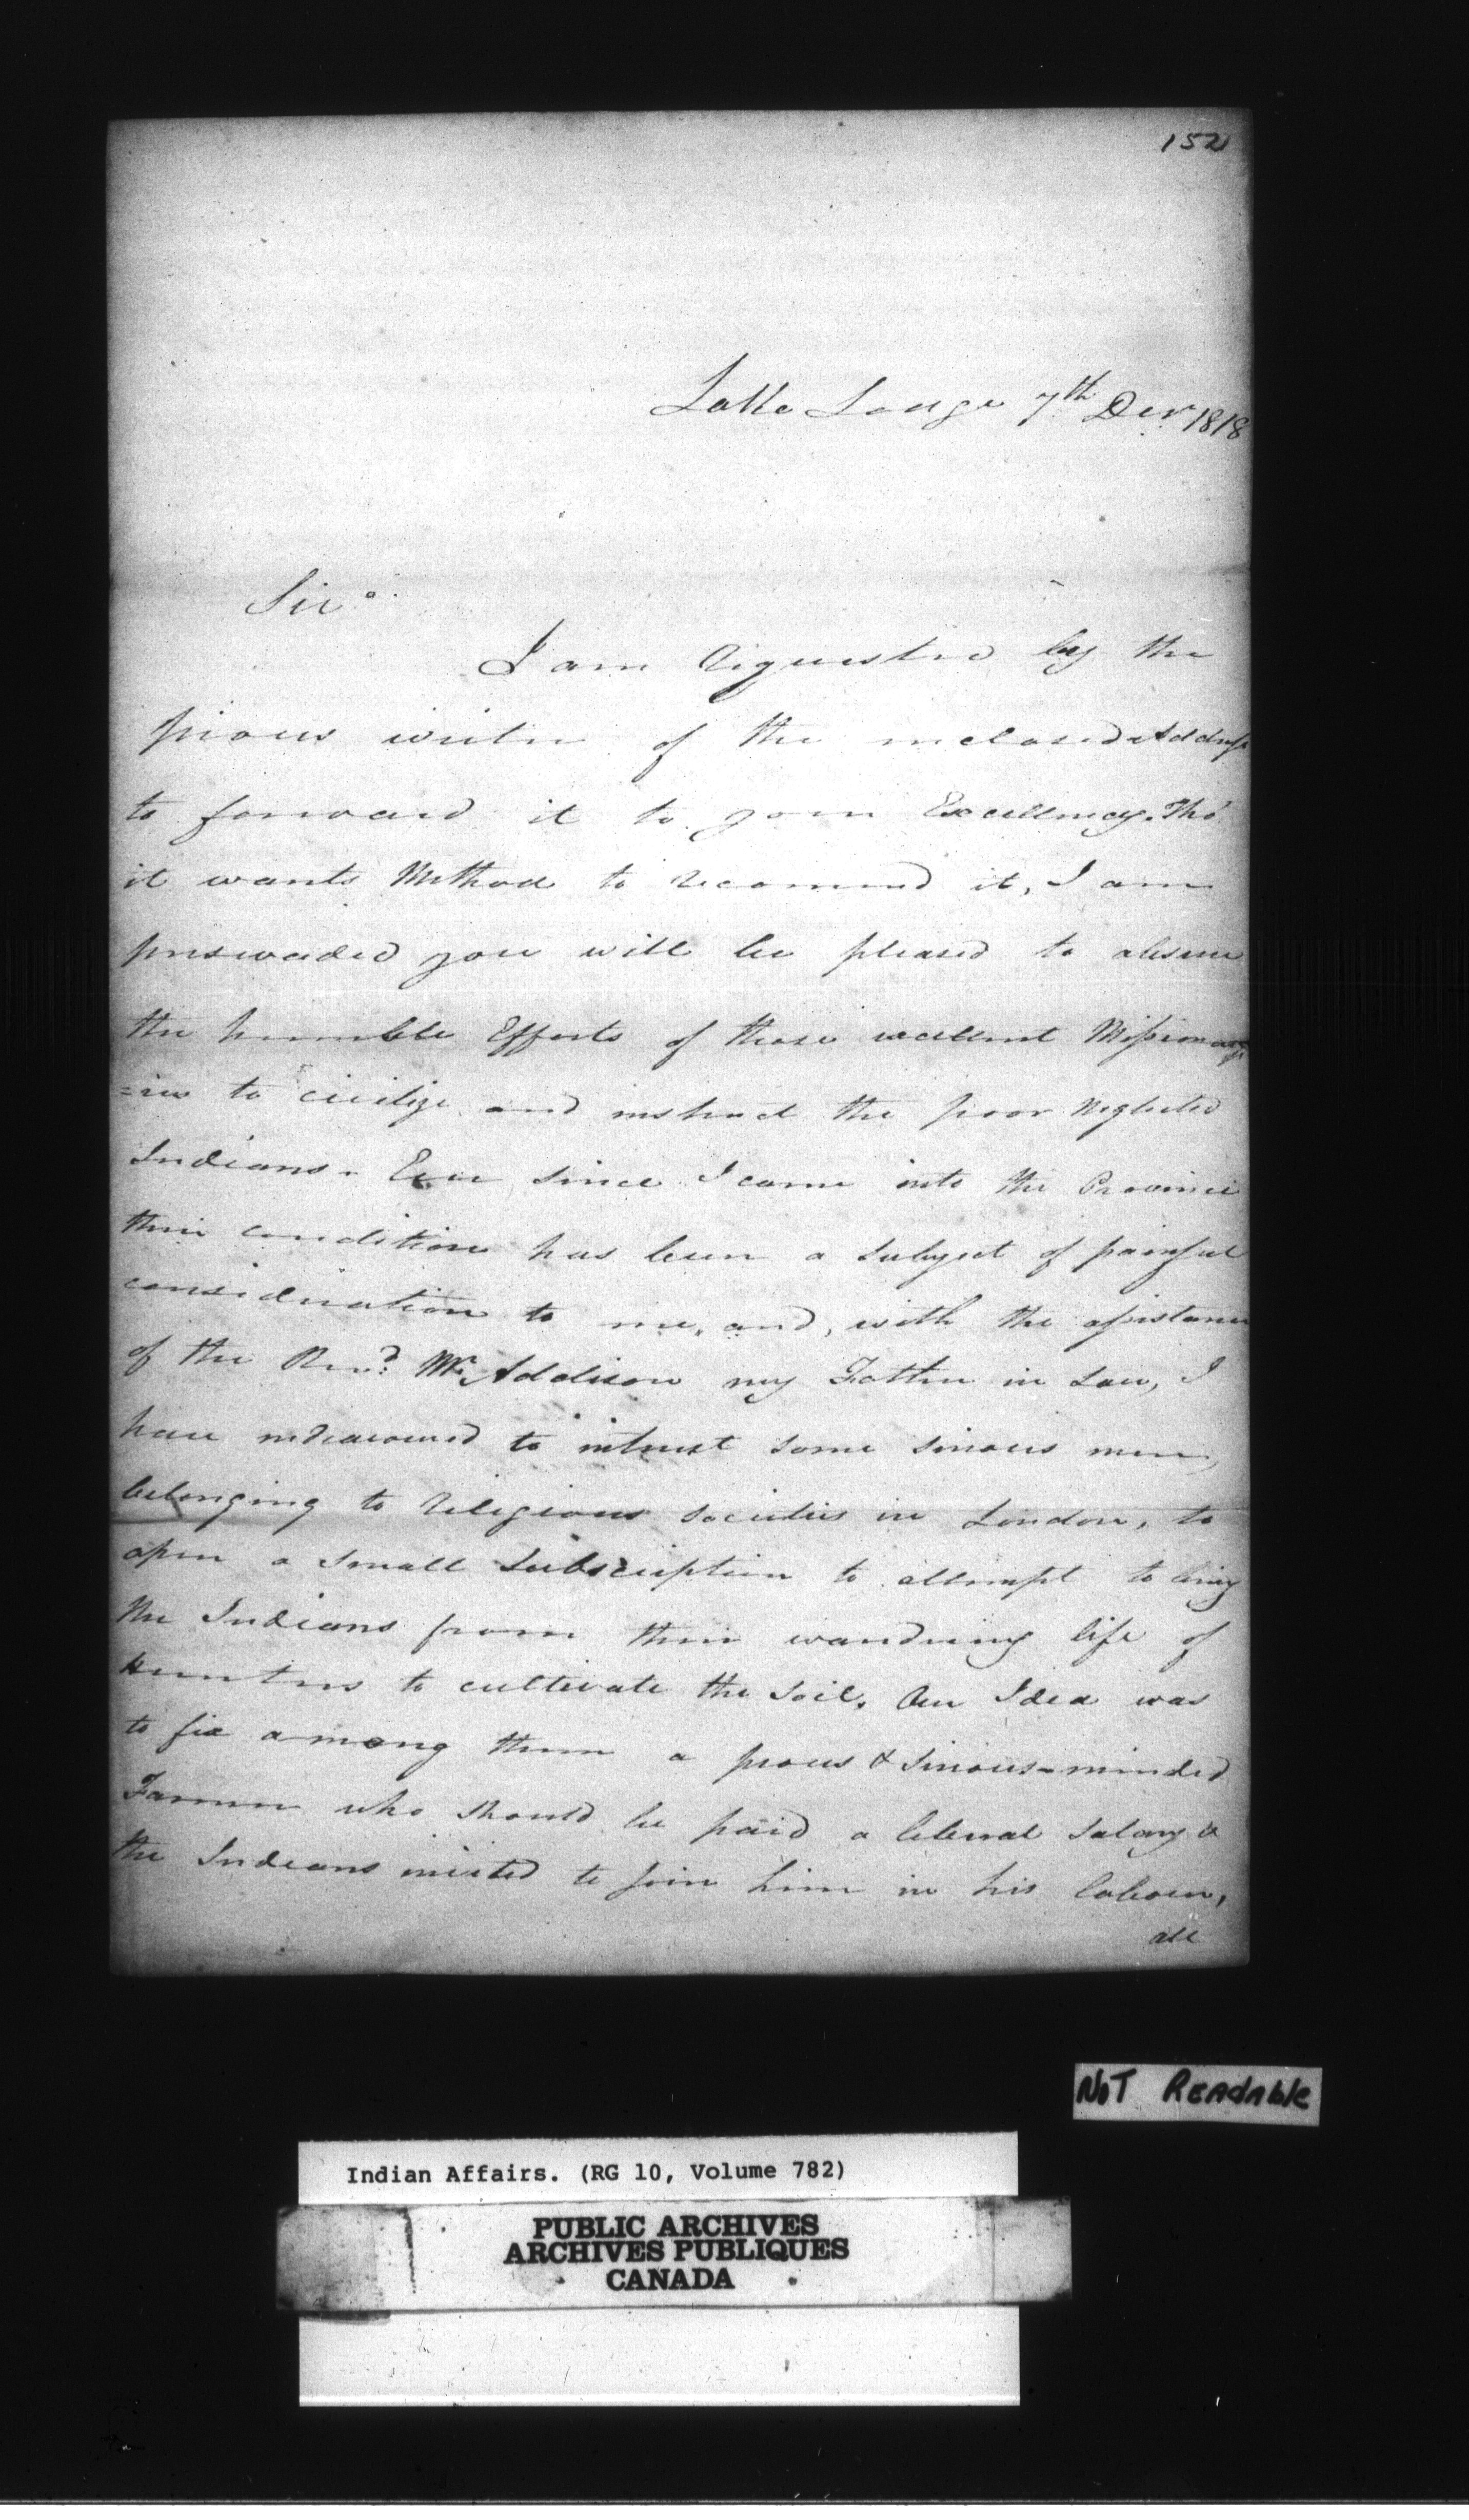 152
Lake Lodge 7th Decr 1818
Sir
I am requested by the
pious writer of the inclosed Address
to forward it to your Excellency. Tho'
it wants Method to recommend it, I am
perswaded you will be pleased to observe
the humble Efforts of these excellent Missionar
=ies to civilize and instruct the poor Neglected
Indians. Ever since I came into the Province
their condition has been a subject of painful
consideration to me, and, with the assistance
of the Revd. Mr. Addison my Father in Law, I
have endeavoured to interest some serious men,
belonging to religious societies in London, to
open a small Subscription to attempt to bring
the Indians from their wandering life of
Hunters to cultivate the soil. Our Idea was
to fix among them a pious & serious-minded
Farmer who should be paid a liberal salary &
the Indians invited to join him in his labour,
all
NOT READABLE
Indian Affairs. (RG 10, Volume 782)
PUBLIC ARCHIVES
ARCHIVES PUBLIQUES
CANADA